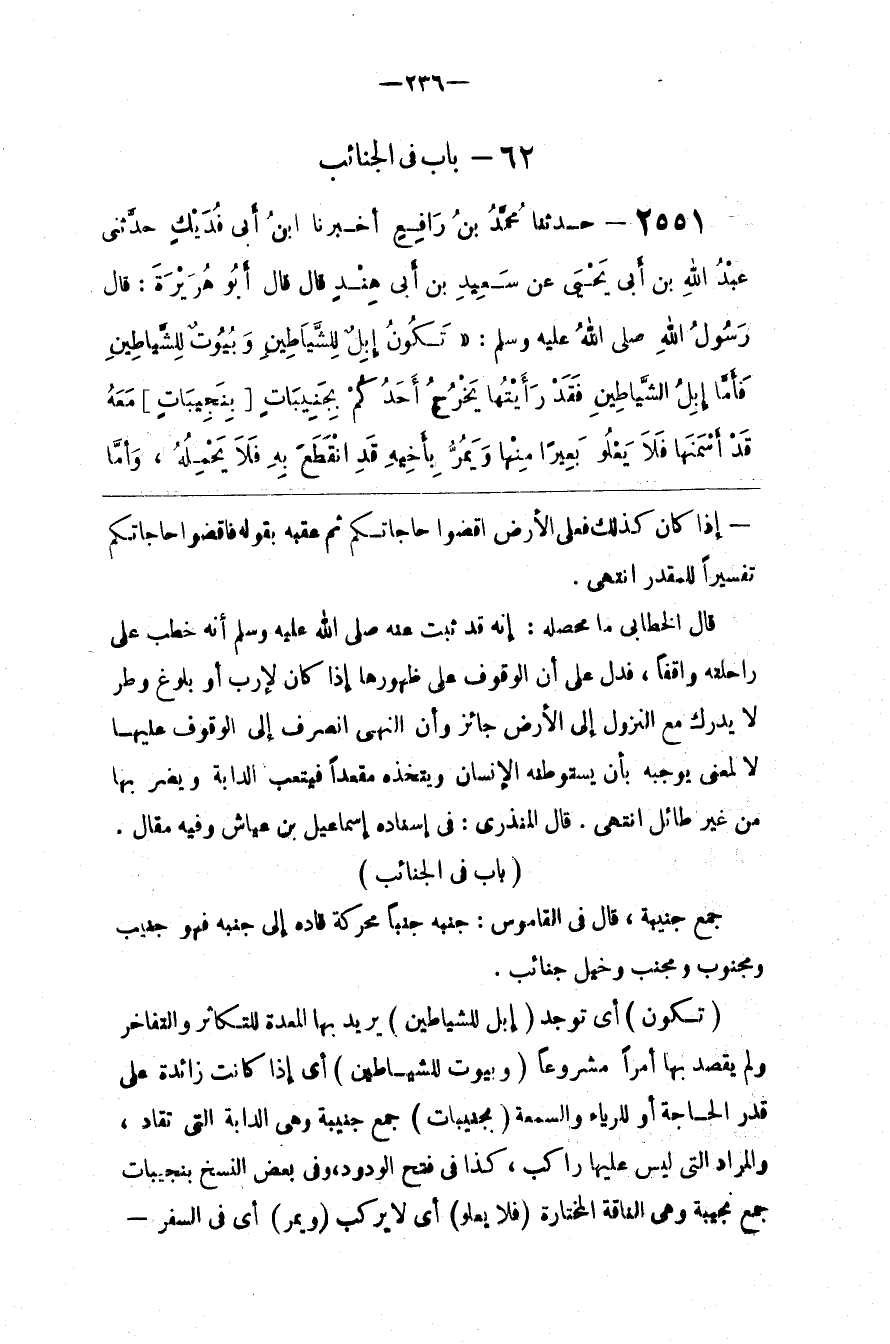 —٢٣٦—
٦٢ — باب فى الجنائب
٢٥٥١ — حدثنا مُحمَّدُ بنُ رَافِعٍ أخبرنا ابنُ أَبى فُدَيْكٍ حدَّثنى
عبْدُ اللهِ بن أَبى يَحْيَى عن سَعِيدِ بن أبى هِنْدٍ قال قال أَبُو هُرَيْرَةَ : قال
رَسُولُ اللهِ صلى اللهُ عليه وسلم : « تَكُونُ إِبِلٌ لِلشَّيَاطِينِ وَبُيُوتٌ لِلشَّياطِينِ
فَأَمَّا إِبِلُ الشَّيَاطِينِ فَقَدْ رَأَيْتُهَا يَخْرُجُ أَحَدُكُمْ بِجَنِيبَاتٍ [ بِنَجِيبَاتٍ ] مَعَهُ
قَدْ أَسْمَنَها فَلاَ يَعْلُو بَعِيرًا مِنْها وَيَمُرُّ بِأَخِيهِ قَدِ انْقَطَعَ بِهِ فَلاَ يَحْمِلُهُ ، وَأمَّا
— إذا كان كذلك فعلى الأرض اقضوا حاجاتكم ثم عقبه بقوله فاقضوا حاجاتكم
تفسيراً للمقدر انتهى .
قال الخطابى ما محصله : إنه قد ثبت عنه صلى الله عليه وسلم أنه خطب على
راحلته واقفاً ، فدل على أن الوقوف على ظهورها إذا كان لإرب أو بلوغ وطر
لا يدرك مع النزول إلى الأرض جائز وأن النهى انصرف إلى الوقوف عليها
لا لمعنى يوجبه بأن يستوطنه الإنسان ويتخذه مقعداً فيتعب الدابة ويضر بها
من غير طائل انتهى . قال المنذرى : فى إسناده إسماعيل بن عياش وفيه مقال .
( باب فى الجنائب )
جمع جنيبة ، قال فى القاموس : جنبه جنباً محركة قاده إلى جنبه فهو جنيب
ومجنوب ومجنب وخيل جنائب .
( تكون ) أى توجد ( إبل للشياطين ) يريد بها المعدة للتكاثر والتفاخر
ولم يقصد بها أمراً مشروعاً ( وبيوت للشياطين ) أى إذا كانت زائدة على
قدر الحاجة أو للرياء والسمعة ( بجنيبات ) جمع جنيبة وهى الدابة التى تقاد ،
والمراد التى ليس عليها راكب ، كذا فى فتح الودود، وفى بعض النسخ بنجيبات
جمع نجيبة وهى الناقة المختارة (فلا يعلو) أى لا يركب (ويمر) أى فى السفر —